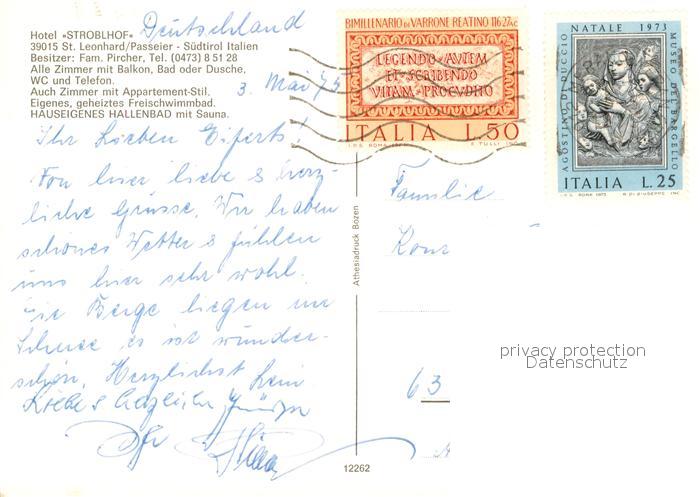 Deutschland
Hotel «STROBLHOF»
39015 St. Leonhard/Passeier - Südtirol Italien
Besitzer: Fam. Pircher, Tel. (0473) 8 51 28
Alle Zimmer mit Balkon, Bad oder Dusche,
WC und Telefon.
Auch Zimmer mit Appartement-Stil.
Eigenes, geheiztes Freischwimmbad.
HAUSEIGENES HALLENBAD mit Sauna.
3. Mai 75
Ihr Lieben
Von hier liebe & herz-
liche Grüsse. Wir haben
schönes Wetter & fühlen
uns hier sehr wohl.
Die Berge liegen im
Schnee es ist wunder-
schön. Herzlichst
Liebe & herzliche Grüsse
BIMILLENARIO DI VARRONE REATINO 116-27 A.C.
LEGENDO·AVTEM
ET·SCRIBENDO
VITAM·PROCVDITO
ITALIA L.50
I.P.S. ROMA
E. TULLI INC.
NATALE 1973
AGOSTINO DI DUCCIO
MUSEO DEL BARGELLO
ITALIA L.25
I.P.S. ROMA 1973 R. DI GIUSEPPE INC.
Familie
63
Athesiadruck Bozen
12262
privacy protection
Datenschutz